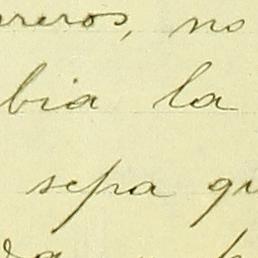 reros, no
bia la
sepa qu